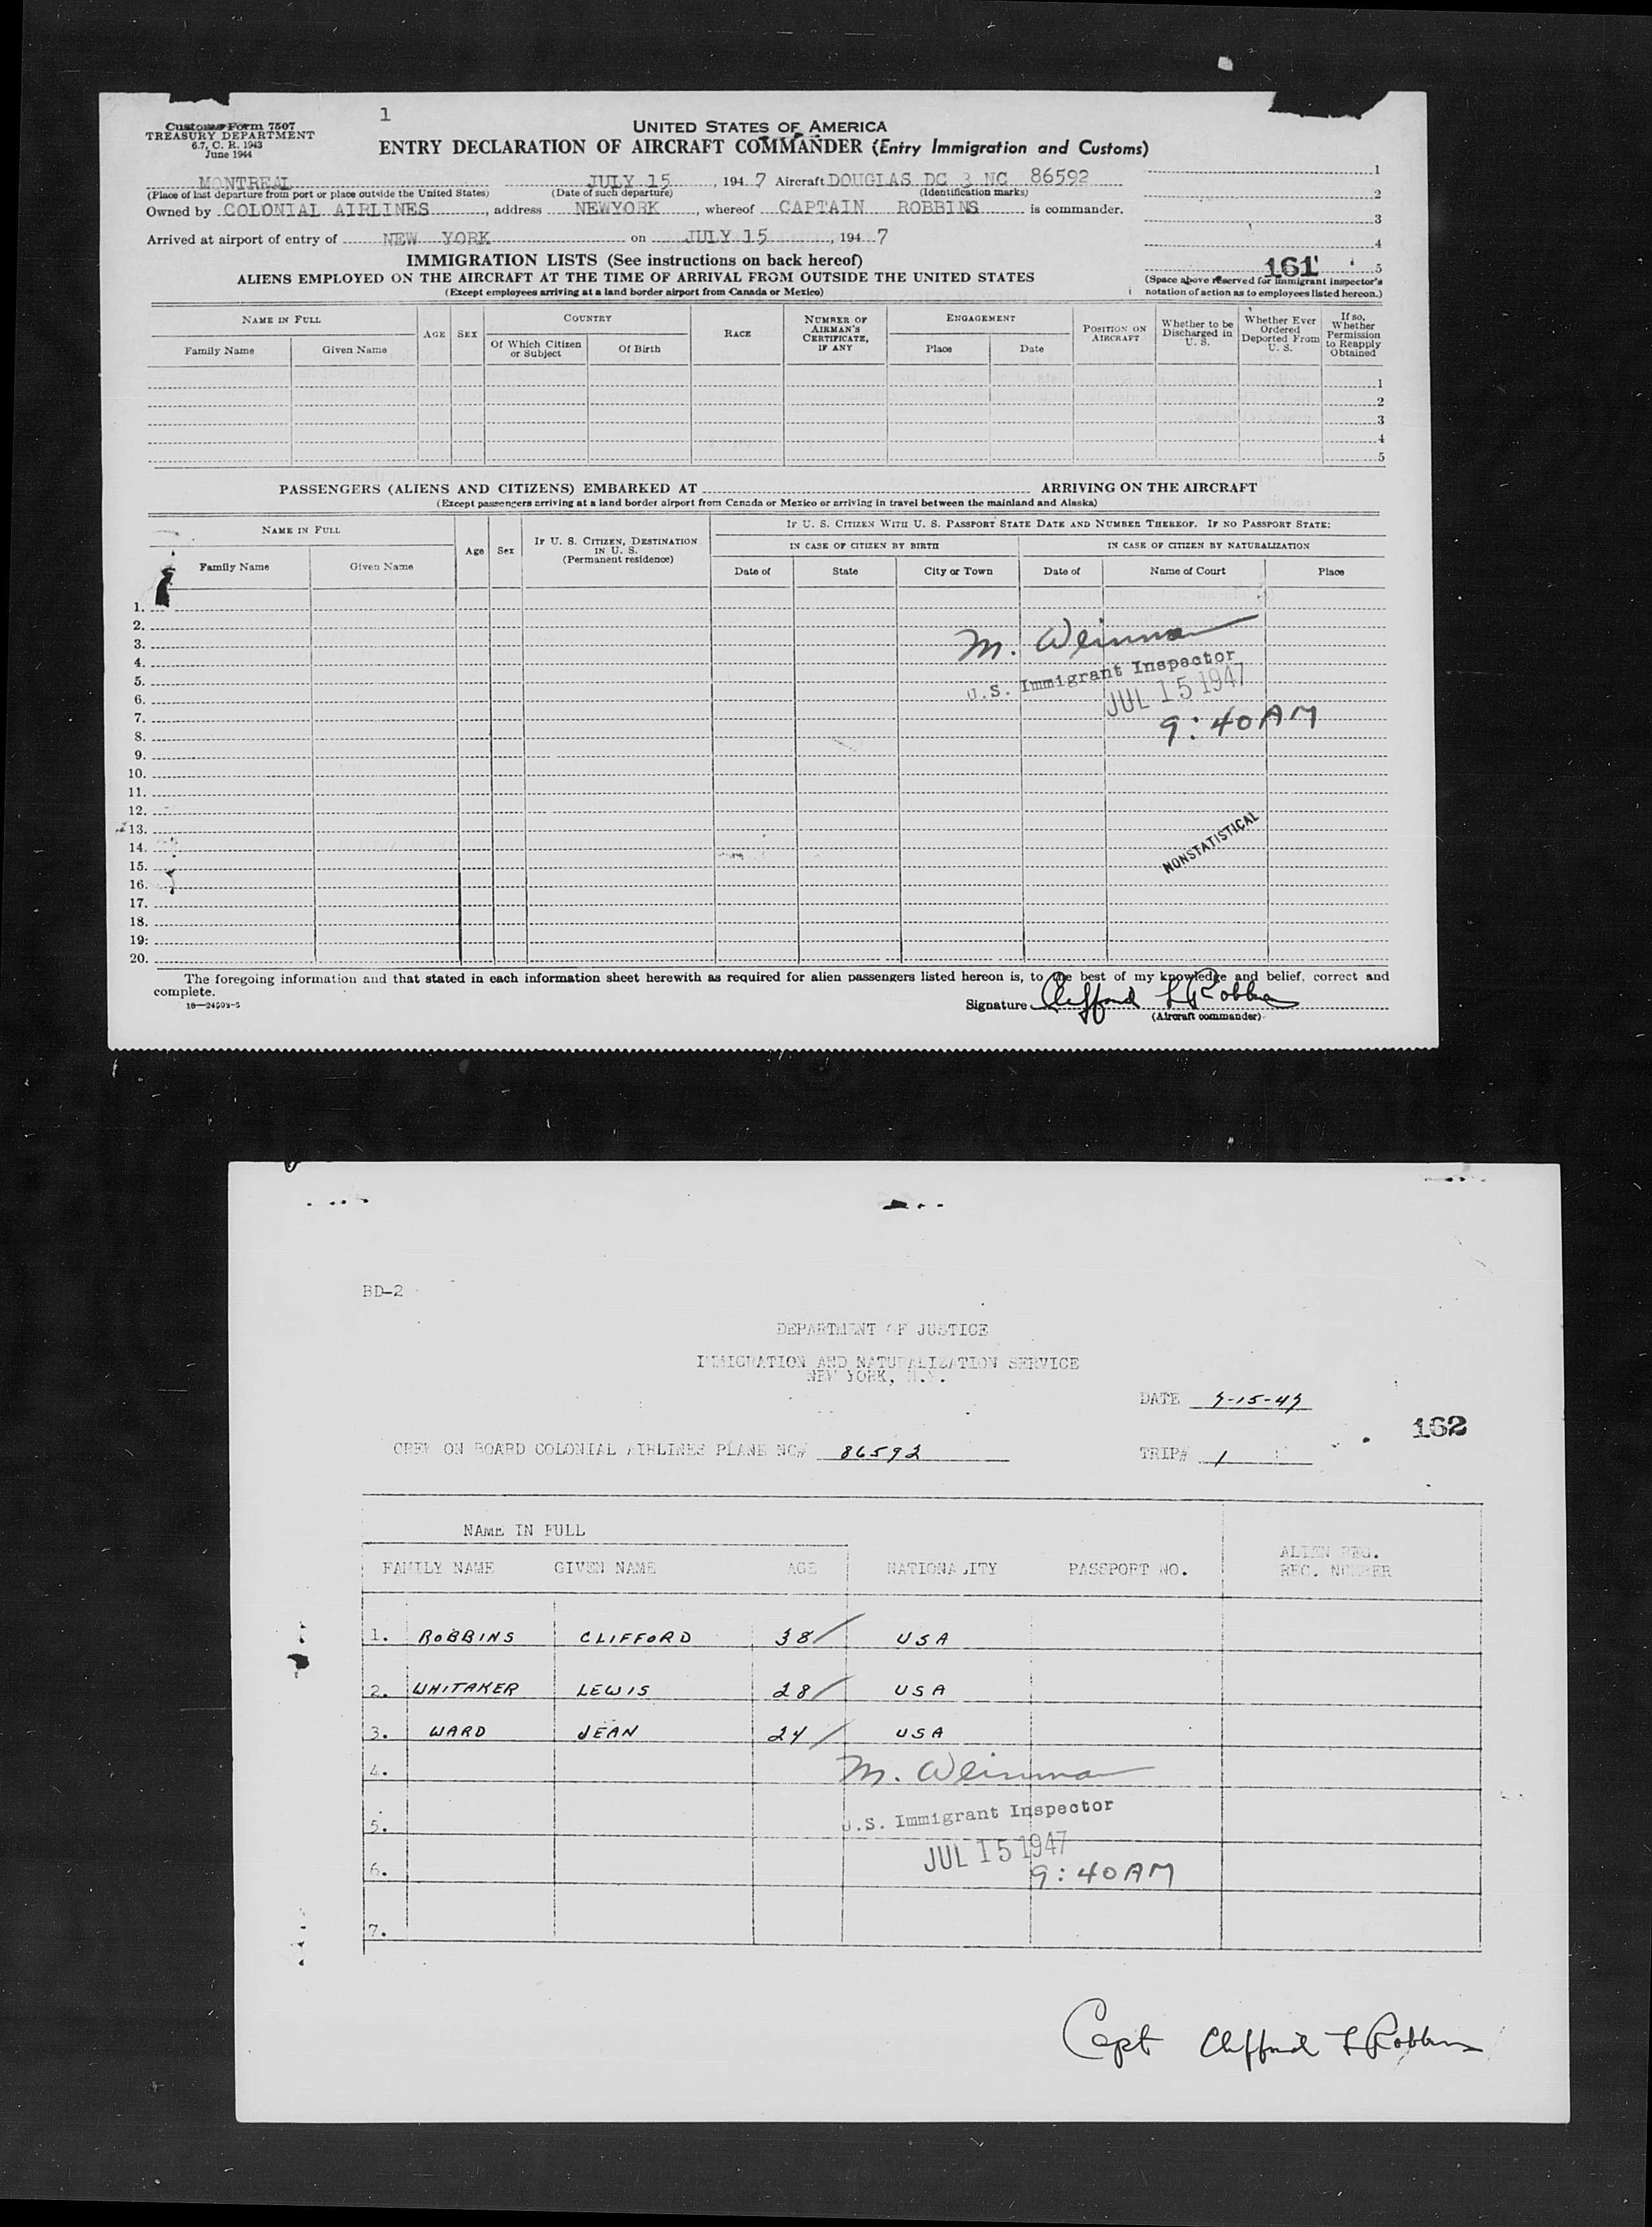 Customs Form 7507
TREASURY DEPARTMENT
6.7, C. R. 1943
June 1944
1
UNITED STATES OF AMERICA
ENTRY DECLARATION OF AIRCRAFT COMMANDER (Entry Immigration and Customs)
MONTREAL JULY 15, 1947 Aircraft DOUGLAS DC 3 NC 86592
(Place of last departure from port or place outside the United States) (Date of such departure) (Identification marks)
Owned by COLONIAL AIRLINES, address NEWYORK, whereof CAPTAIN ROBBINS is commander.
Arrived at airport of entry of NEW YORK on JULY 15, 1947
1
2
3
4
161 5
(Space above reserved for immigrant inspector's notation of action as to employees listed hereon.)
IMMIGRATION LISTS (See instructions on back hereof)
ALIENS EMPLOYED ON THE AIRCRAFT AT THE TIME OF ARRIVAL FROM OUTSIDE THE UNITED STATES
(Except employees arriving at a land border airport from Canada or Mexico)
NAME IN FULL
Family Name Given Name
AGE SEX
COUNTRY
Of Which Citizen or Subject Of Birth
RACE
NUMBER OF AIRMAN'S CERTIFICATE, IF ANY
ENGAGEMENT
Place Date
POSITION ON AIRCRAFT
Whether to be Discharged in U. S.
Whether Ever Ordered Deported From U. S.
If so, Whether Permission to Reapply Obtained
1
2
3
4
5
PASSENGERS (ALIENS AND CITIZENS) EMBARKED AT ARRIVING ON THE AIRCRAFT
(Except passengers arriving at a land border airport from Canada or Mexico or arriving in travel between the mainland and Alaska)
NAME IN FULL
Family Name Given Name
Age Sex
IF U. S. CITIZEN, DESTINATION IN U. S.
(Permanent residence)
IF U. S. CITIZEN WITH U. S. PASSPORT STATE DATE AND NUMBER THEREOF. IF NO PASSPORT STATE:
IN CASE OF CITIZEN BY BIRTH IN CASE OF CITIZEN BY NATURALIZATION
Date of State City or Town Date of Name of Court Place
1.
2.
3.
4.
5.
6.
7.
8.
9.
10.
11.
12.
13.
14.
15.
16.
17.
18.
19.
20.
M. Weinman
U.S. Immigrant Inspector
JUL 15 1947
9:40AM
NONSTATISTICAL
The foregoing information and that stated in each information sheet herewith as required for alien passengers listed hereon is, to the best of my knowledge and belief, correct and
complete.
Signature Clifford L Robbins
(Aircraft commander)
BD-2
DEPARTMENT OF JUSTICE
IMMIGRATION AND NATURALIZATION SERVICE
NEW YORK, N.Y.
DATE 7-15-47
162
CREW ON BOARD COLONIAL AIRLINES PLANE NC# 86592 TRIP# 1
NAME IN FULL
FAMILY NAME GIVEN NAME AGE NATIONALITY PASSPORT NO. ALIEN REG. REC. NUMBER
1. ROBBINS CLIFFORD 38/ USA
2. WHITAKER LEWIS 28/ USA
3. WARD JEAN 24/ USA
4. M. Weinman
5. U.S. Immigrant Inspector
JUL 15 1947
6. 9:40AM
7.
Capt Clifford L Robbins